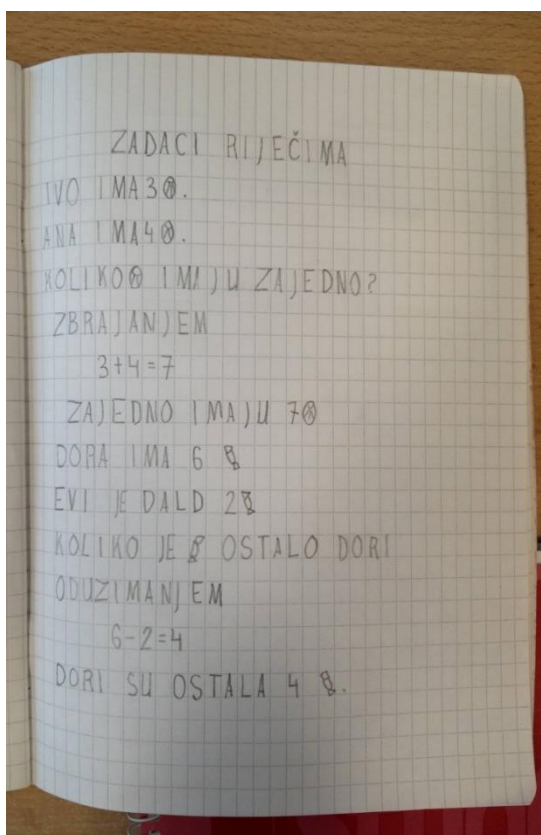 ZADACI RIJEČIMA
IVO IMA 3.
ANA IMA 4.
KOLIKO IMAJU ZAJEDNO?
ZBRAJANJEM
3+4=7
ZAJEDNO IMAJU 7
DORA IMA 6
EVI JE DALD 2
KOLIKO JE OSTALO DORI
ODUZIMANJEM
6-2=4
DORI SU OSTALA 4.